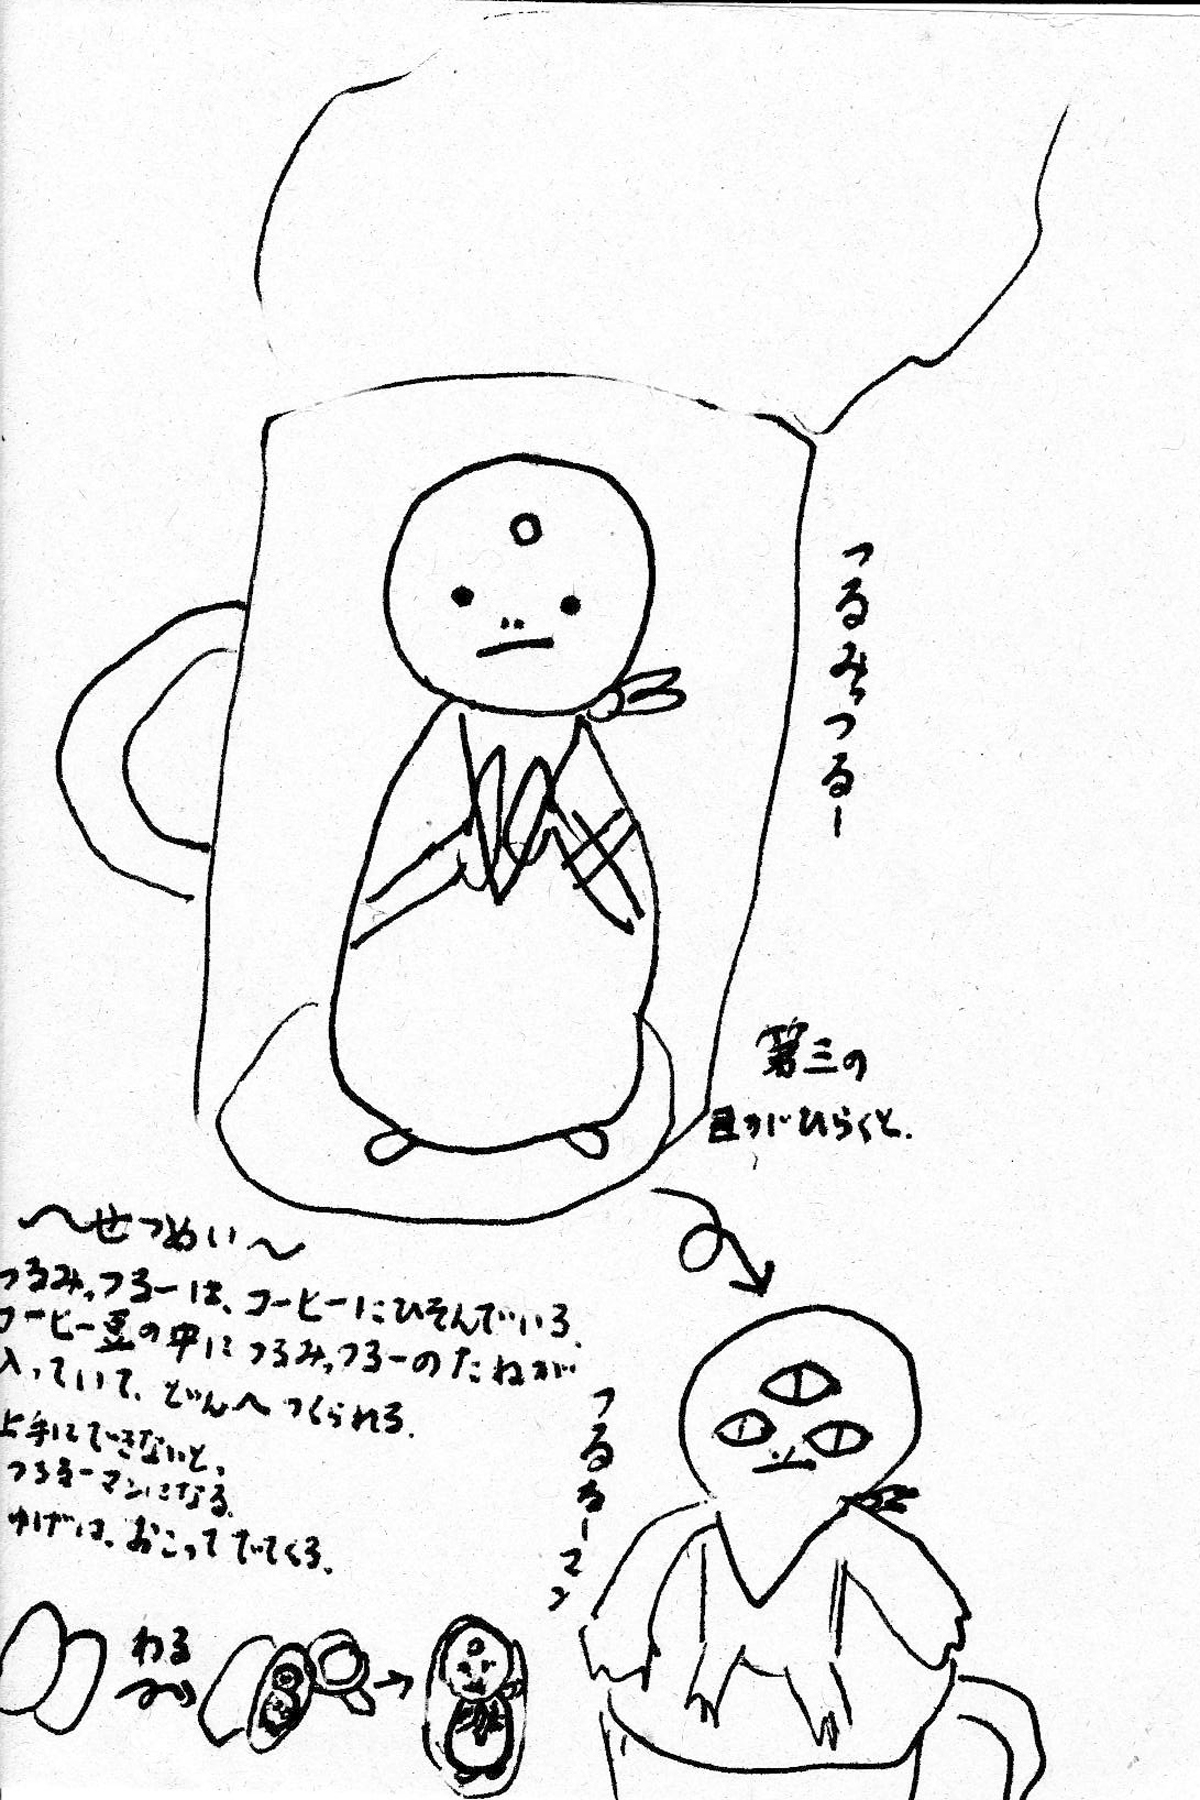 つるみっつるー
第三の
目がひらくと.
〜せつめい〜
つるみっつるーは、コーヒーにひそんでいる.
コーヒー豆の中につるみっつるーのたねが
入っていて、どんつくられる.
上手にできないと、
つるるーマンになる.
ゆげは、おこってでてくる.
つるるーマン
わる